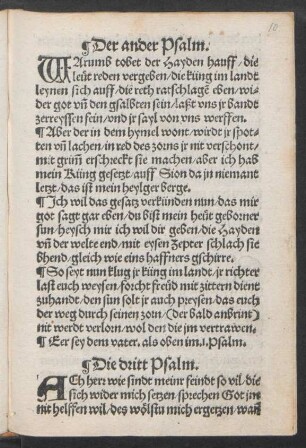 ¶Der ander Psalm.
WArumb tobet der Hayden hauff / die
leüt reden vergeben / die küng im landt
leynen sich auff / die reth ratschlagē eben / wi-
der got vñ den gsalbten sein / laßt vns jr bandt
zerreyssen fein / vnd jr sayl von vns werffen.
¶Aber der in dem hymel wont / wirdt jr spot-
ten vñ lachen / in red des zorns jr nit verschont /
mit grim̄ erschreckt sie machen / aber ich hab
mein Küng gesetzt / auff Sion da jn niemant
letzt / das ist mein heylger berge.
¶Ich wil das gesatz verkünden nun / das mir
got sagt gar eben / du bist mein heüt geborner
sun / heysch mir ich wil dir geben / die Hayden
vñ der welte end / mit eysen Zepter schlach sie
bhend / gleich wie eins haffners gschirre.
¶So seyt nun klug jr küng im landt / jr richter
last euch weysen / forcht freüd mit zittern dient
zuhandt / den sun solt jr auch preysen / das euch
der weg durch seinen zorn / (der bald anbrint)
nit werdt verlorn / wol den die jm vertrawen.
¶Eer sey dem vater. als oben im .1. Psalm.
¶Die dritt Psalm.
ACh herr wie sindt meinr feindt so vil / die
sich wider mich setzen / sprechen Got jm
nit helffen wil / des wölstu mich ergetzen / wañ